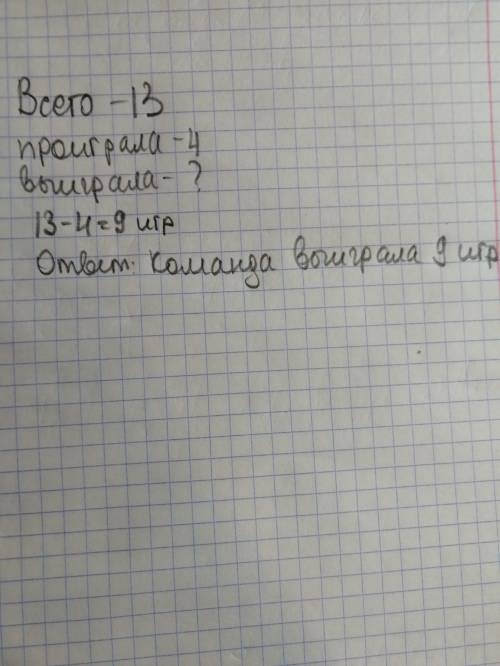 Всего - 13
проиграла - 4
выиграла - ?
13-4=9 игр
Ответ: команда выиграла 9 игр